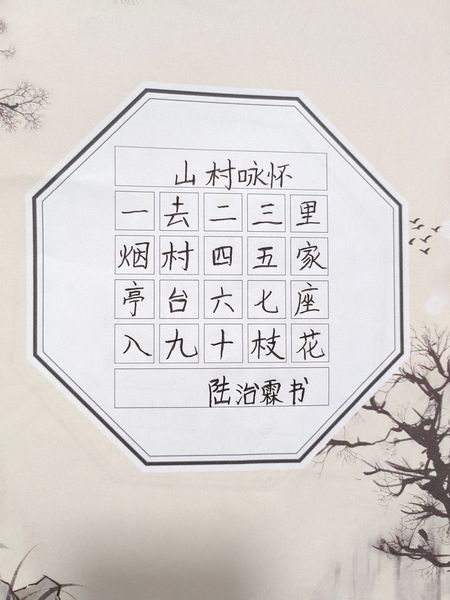 山村咏怀
一去二三里
烟村四五家
亭台六七座
八九十枝花
陆治霖书